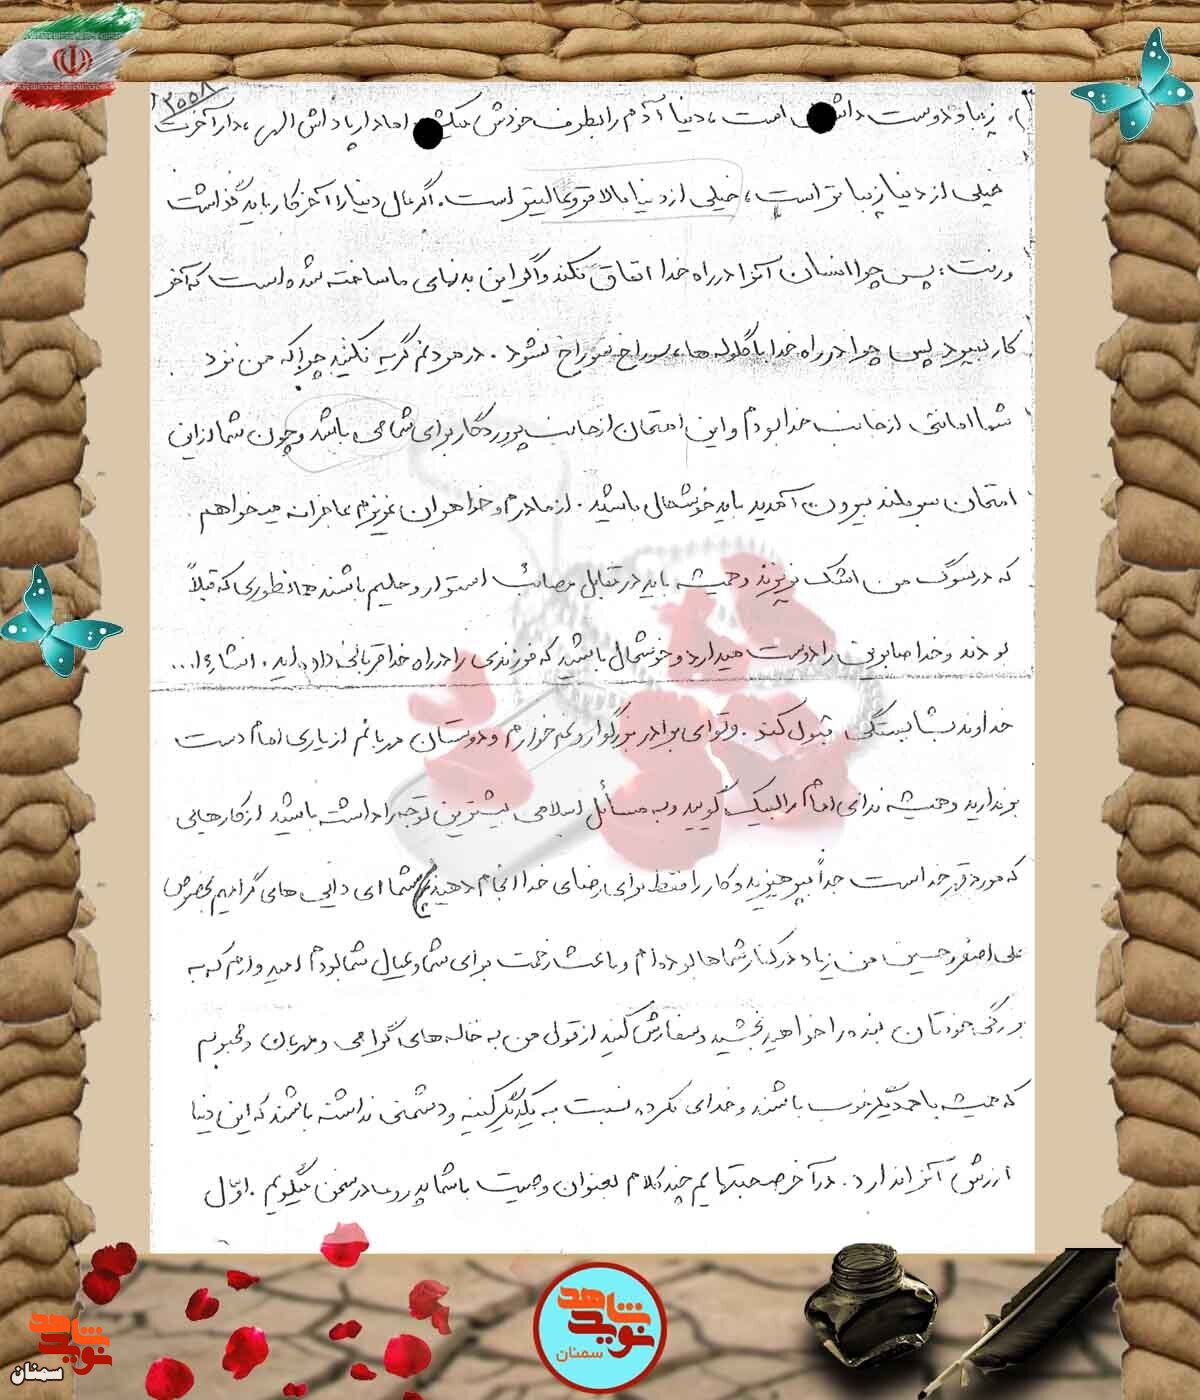 ۲۰۰۵۸
زیبا و دوست داشتنی است، دنیا آدم را بطرف خودش میکشد اما دار پاداش الهی، دار آخرت
خیلی از دنیا زیباتر است، خیلی از دنیا بالاتر و عالیتر است. اگر مال دنیا را آخر کار باید گذاشت
و رفت، پس چرا انسان آنرا در راه خدا انفاق نکند و اگر این بدنهای ما ساخته شده است که آخر
کار بمیرد پس چرا در راه خدا با گلوله ها، سوراخ سوراخ نشود. در مردنم گریه نکنید چرا که من نزد
شما امانتی از جانب خدا بودم و این امتحان از جانب پروردگار برای شما می باشد و چون شما از این
امتحان سربلند بیرون آمدید باید خوشحال باشید. از مادرم و خواهران عزیزم عاجزانه میخواهم
که در سوگ من اشک نریزند و همیشه باید در مقابل مصائب استوار و حلیم باشند همانطوری که قبلاً
بودند و خدا صابرین را دوست میدارد و خوشحال باشید که فرزندی را در راه خدا قربانی داده اید. انشاءا...
خداوند بشایستگی قبول کند. و تو ای برادر بزرگوار و غم خوارم و دوستان مهربانم از یاری امام دست
برندارید و همیشه ندای امام را لبیک گویید و به مسائل اسلامی بیشترین توجه را داشته باشید از کارهایی
که مورد قهر خداست جداً بپرهیزید و کار را فقط برای رضای خدا انجام دهید شما ای دایی های گرامیم بخصوص
علی اصغر و حسین من زیاد در کنار شماها بوده ام و باعث زحمت برای شما و عیال شما بودم امیدوارم که به
بزرگی خودتان بنده را خواهید بخشید و سفارش کنید از قول من به خاله های گرامی و مهربان و محبوبم
که همیشه با همدیگر خوب باشند و خدای نکرده نسبت به یکدیگر کینه و دشمنی نداشته باشند که این دنیا
ارزش آنرا ندارد. در آخر صحبتهایم چند کلام بعنوان وصیت با شما پدر و مادر سخن میگویم. اول
نوید شاهد
سمنان
نوید شاهد
سمنان